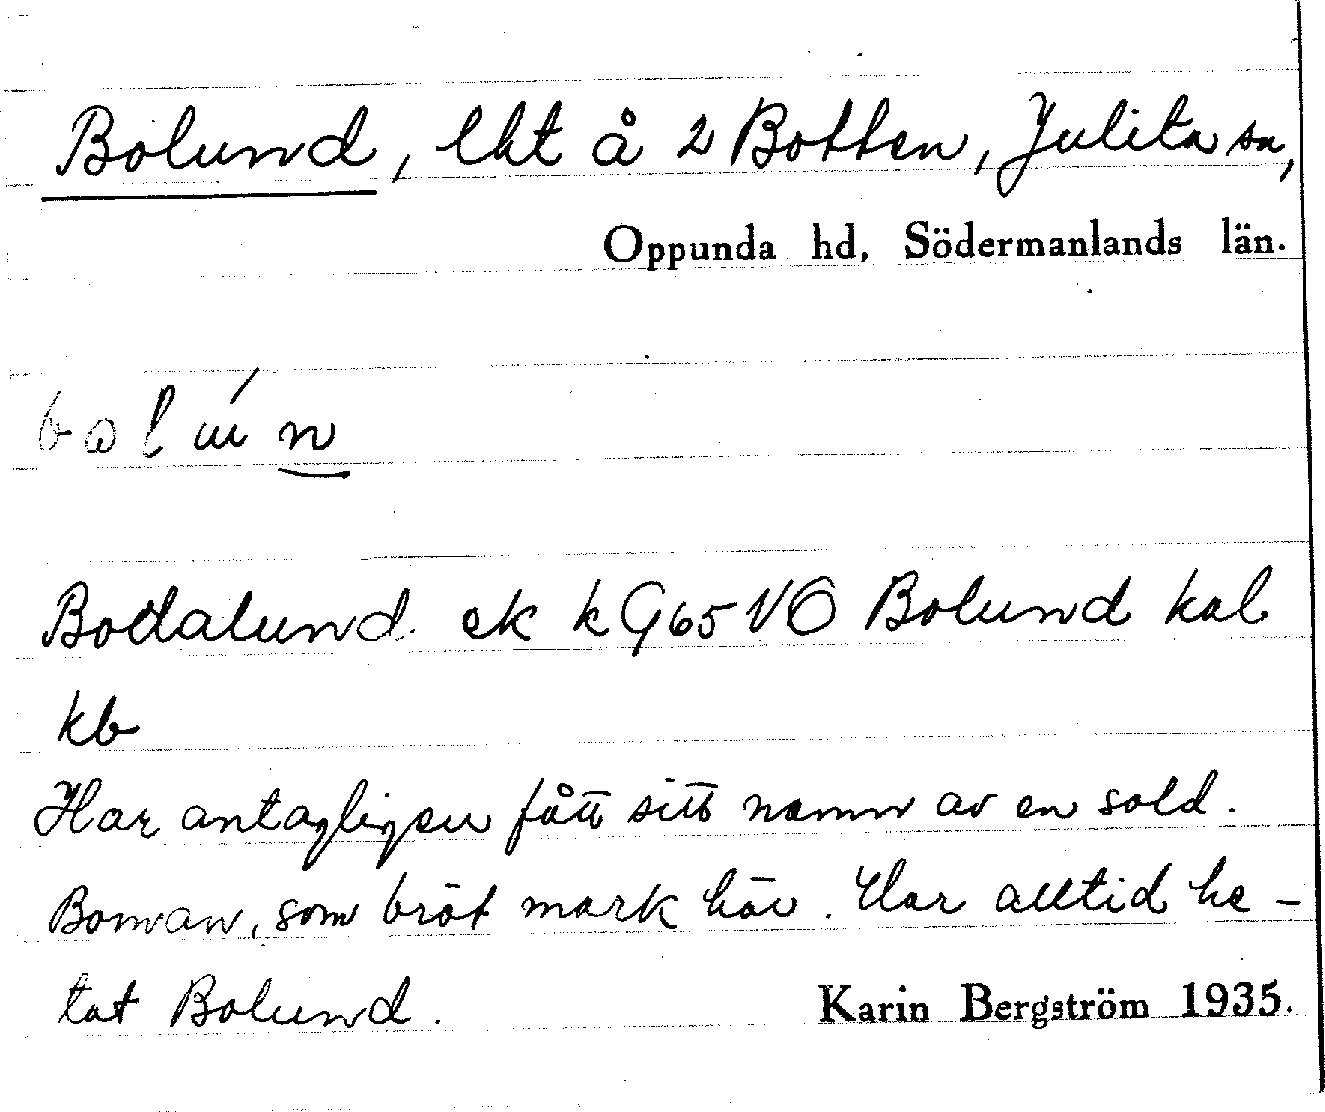 Bolund, lht å 2 Botten, Julita sn,
Oppunda hd, Södermanlands län.
Bodalund ek k G65 VO Bolund kal
kb
Har antagligen fått sitt namn av en sold.
Boman, som bröt mark här. Har alltid he-
tat Bolund.
Karin Bergström 1935.